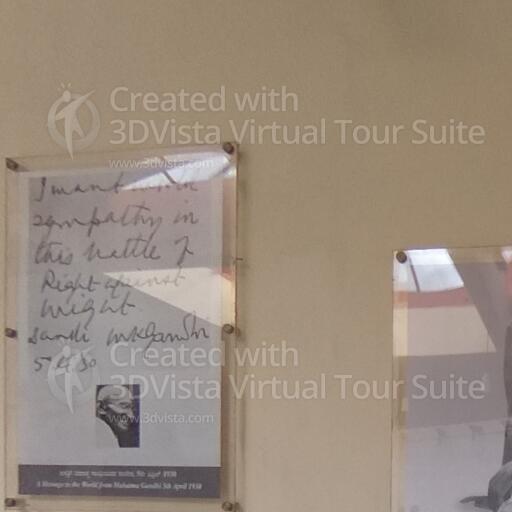 Created with
3DVista Virtual Tour Suite
www.3dvista.com
I want world
sympathy in
this battle of
Right against
might.
Dandi MKGandhi
5.4.30
Created with
3DVista Virtual Tour Suite
www.3dvista.com
A Message to the World from Mahatma Gandhi 5th April 1930